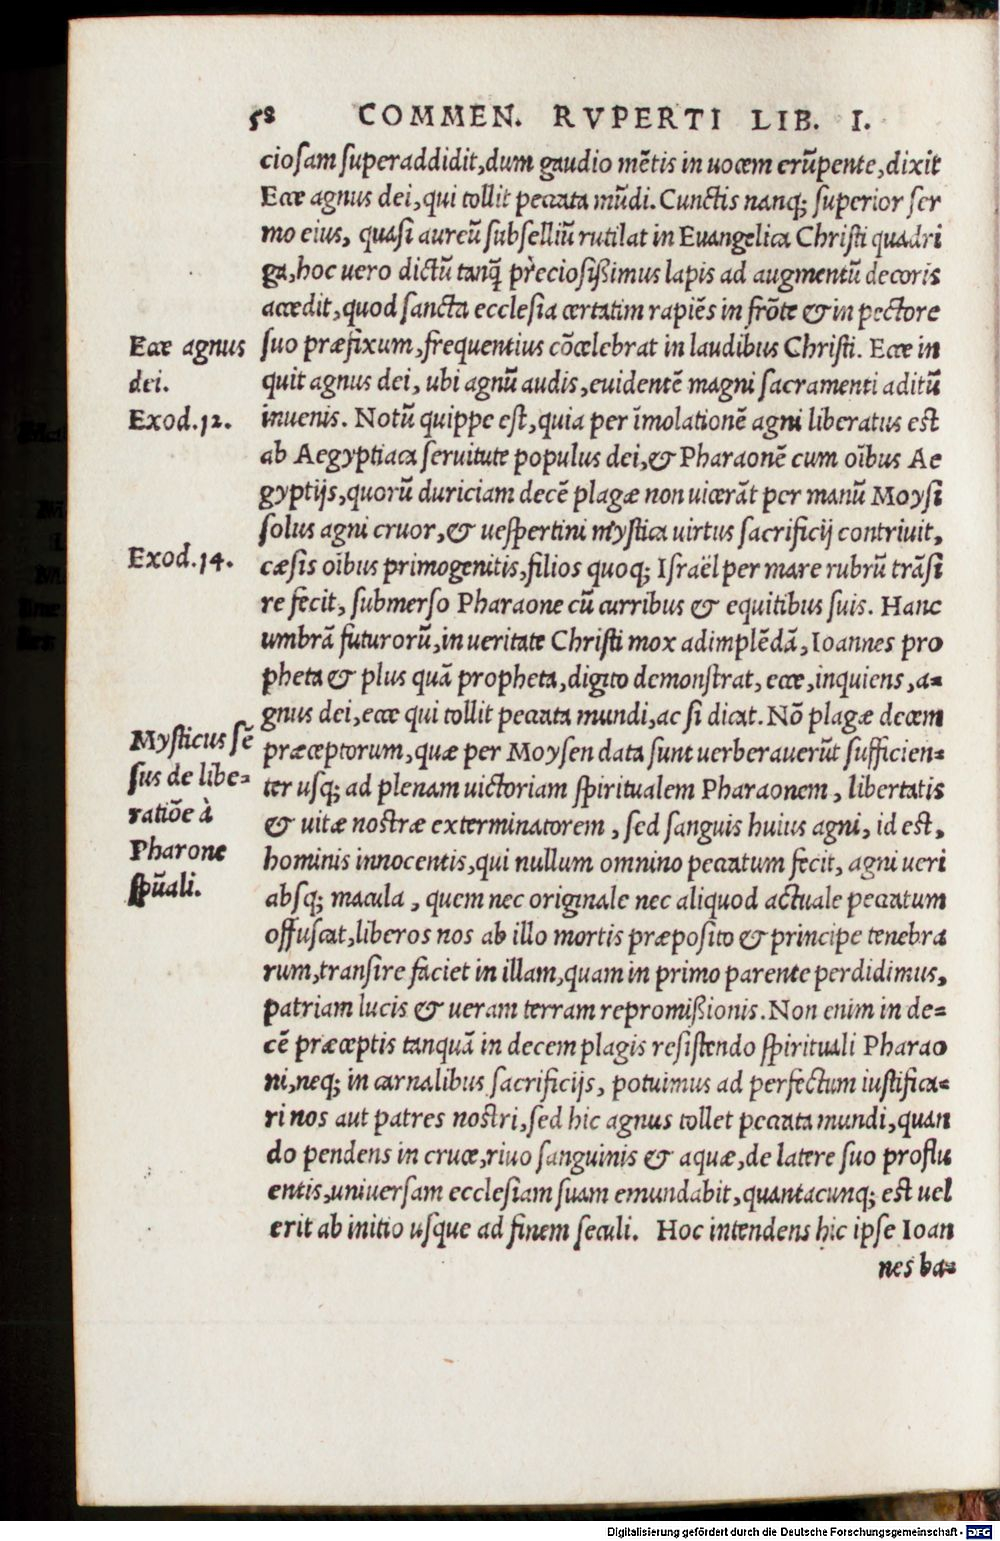 58 COMMEN. RVPERTI LIB. I.
cioſam ſuperaddidit, dum gaudio mētis in uocem erūpente, dixit
Ecce agnus dei, qui tollit peccata mūdi. Cunctis nanq; ſuperior ſer
mo eius, quaſi aureū ſubſelliū rutilat in Euangelica Chriſti quadri
ga, hoc uero dictū tanq̄ preciosiſſimus lapis ad augmentū decoris
accedit, quod ſancta eccleſia certatim rapiēs in frōte & in pectore
ſuo præfixum, frequentius cōcelebrat in laudibus Chriſti. Ecce in
quit agnus dei, ubi agnū audis, euidentē magni ſacramenti aditū
inuenis. Notū quippe eſt, quia per īmolationē agni liberatus eſt
ab Aegyptiaca ſeruitute populus dei, & Pharaonē cum oībus Ae
gyptijs, quorū duriciam decē plagæ non uicerāt per manū Moyſi
ſolus agni cruor, & ueſpertini myſtica uirtus ſacrificij contriuit,
cæſis oībus primogenitis, filios quoq; Iſraël per mare rubrū trāſi
re fecit, ſubmerſo Pharaone cū curribus & equitibus ſuis. Hanc
umbrā futurorū, in ueritate Chriſti mox adimplēdā, Ioannes pro
pheta & plus quā propheta, digito demonſtrat, ecce, inquiens, a=
gnus dei, ecce qui tollit peccata mundi, ac ſi dicat. Nō plagæ decem
præceptorum, quæ per Moyſen data ſunt uerberauerūt ſufficien=
ter uſq; ad plenam uictoriam ſpiritualem Pharaonem, libertatis
& uitæ noſtræ exterminatorem, ſed ſanguis huius agni, id eſt,
hominis innocentis, qui nullum omnino peccatum fecit, agni ueri
abſq; macula, quem nec originale nec aliquod actuale peccatum
offuſcat, liberos nos ab illo mortis præpoſito & principe tenebra
rum, tranſire faciet in illam, quam in primo parente perdidimus,
patriam lucis & ueram terram repromiſſionis. Non enim in de=
cē præceptis tanquā in decem plagis reſiſtendo ſpirituali Pharao
ni, neq; in carnalibus ſacrificijs, potuimus ad perfectum iuſtifica=
ri nos aut patres noſtri, ſed hic agnus tollet peccata mundi, quan
do pendens in cruce, riuo ſanguinis & aquæ, de latere ſuo proflu
entis, uniuerſam eccleſiam ſuam emundabit, quantacunq; eſt uel
erit ab initio uſque ad finem ſeculi. Hoc intendens hic ipſe Ioan
nes ba=
Ecce agnus
dei.
Exod. 12.
Exod. 14.
Myſticus ſē
ſus de libe=
ratiōe à
Pharone
ſpūali.
Digitalisierung gefördert durch die Deutsche Forschungsgemeinschaft - DFG